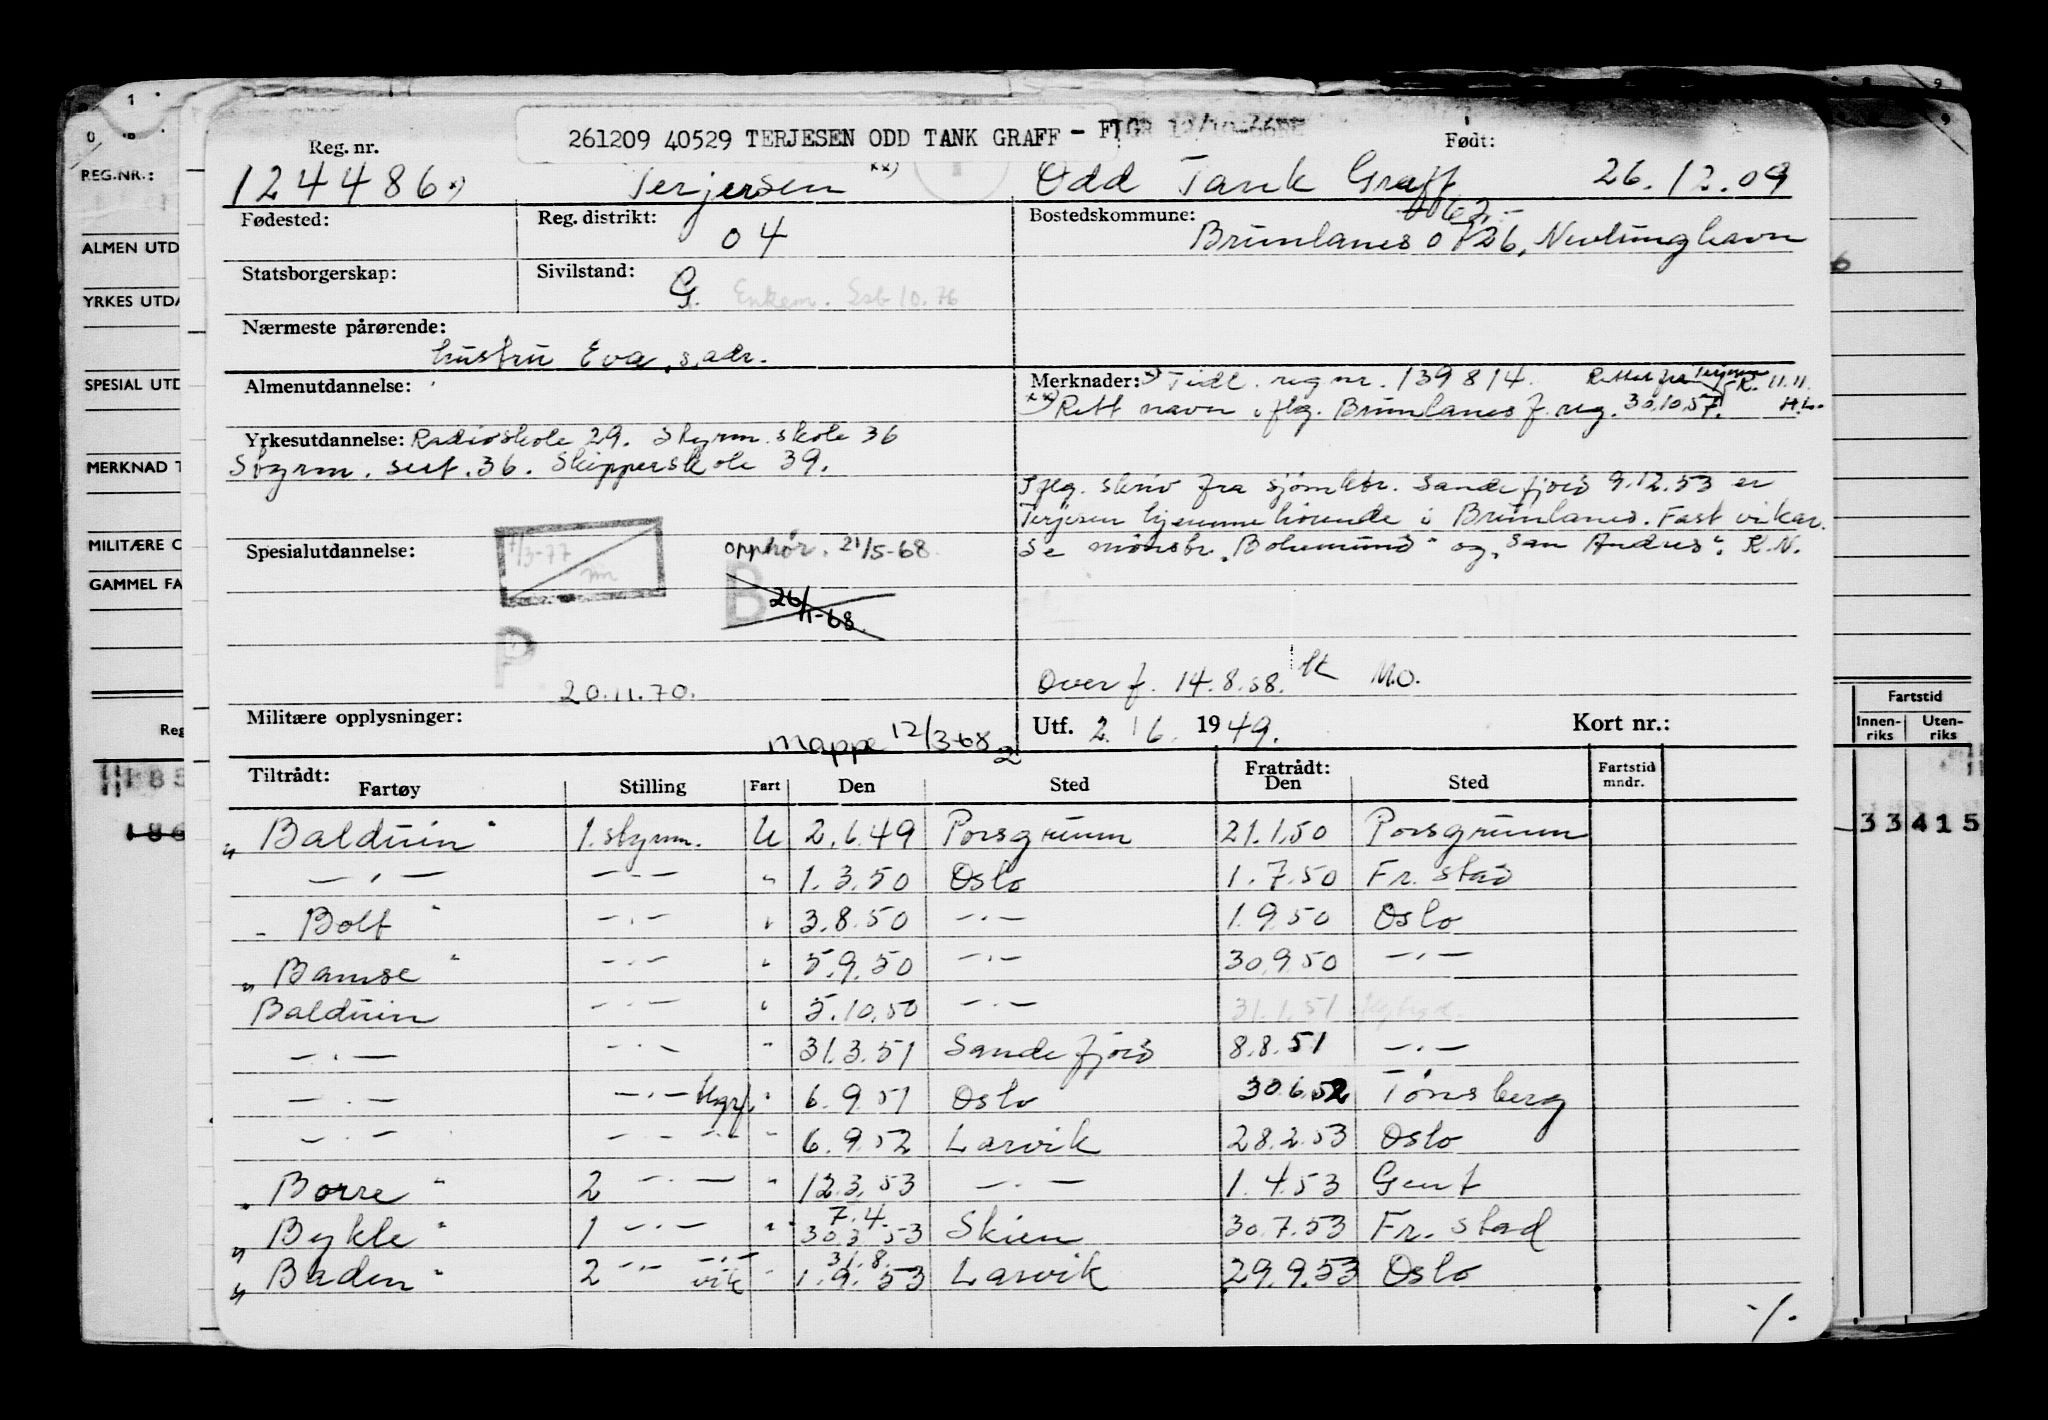 261209 40529 TERJESEN ODD TANK GRAFF -
Reg. nr.
Født:
124486 x)
Terjesen xx)
Odd Tank Graff
26.12.09
Fødested:
Reg. distrikt:
04
Bostedskommune:
Brunlanes 0726, Nevlunghavn
Statsborgerskap:
Sivilstand:
G. Enkem.
Nærmeste pårørende:
hustru Eva, s.adr.
Almenutdannelse:
Merknader: x) Tidl. reg nr. 139814.
xx) Rett navn iflg. Brunlanes f. reg. 30.10.57.
Yrkesutdannelse: Radioskole 29. Styrm. skole 36
Styrm. sert. 36. Skipperskole 39.
Iflg. skriv fra sjømktr. Sandefjord 9.12.53 er
Terjesen hjemmehørende i Brunlanes. Fast vikar.
Se mønstr. "Bohemund" og "San Andres". K.N.
Spesialutdannelse:
7/3-77
opphør. 21/5-68.
B
26/11-68
P
20.11.70.
Overf. 14.8.58.
M.O.
Militære opplysninger:
mappe 12/3-68
Utf. 2/6 1949.
Kort nr.:
Tiltrådt:
Fratrådt:
Fartøy Stilling Fart Den Sted Den Sted Fartstid mndr.
"Balduin" 1. styrm. U 2.6.49 Porsgrunn 21.1.50 Porsgrunn
—"— —"— " 1.3.50 Oslo 1.7.50 Fr. stad
"Bolt" —"— " 3.8.50 —"— 1.9.50 Oslo
"Bamse" —"— " 5.9.50 —"— 30.9.50 —"—
Balduin —"— " 5.10.50 —"— 31.1.51
—"— —"— " 31.3.51 Sandefjord 8.8.51 —"—
—"— —"— " 6.9.51 Oslo 30.6.52 Tønsberg
—"— —"— " 6.9.52 Larvik 28.2.53 Oslo
"Borre" 2 —"— " 12.3.53 —"— 1.4.53 Gent
7.4.
"Bykle" 1 —"— " 30.3.53 Skien 30.7.53 Fr. stad
31.8.
"Baden" 2 —"— vik " 1.9.53 Larvik 29.9.53 Oslo
-/.
REG.NR.:
ALMEN UTD
YRKES UTDA
SPESIAL UTD
MERKNAD T
MILITÆRE O
GAMMEL FA
Reg
186
Fartstid
Innen-
riks
Uten-
riks
33415